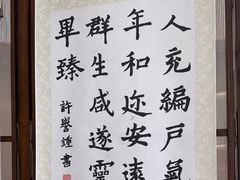 人充編戶氣
年和迩安遠
群生咸遂靈
畢臻
許譽鍾書